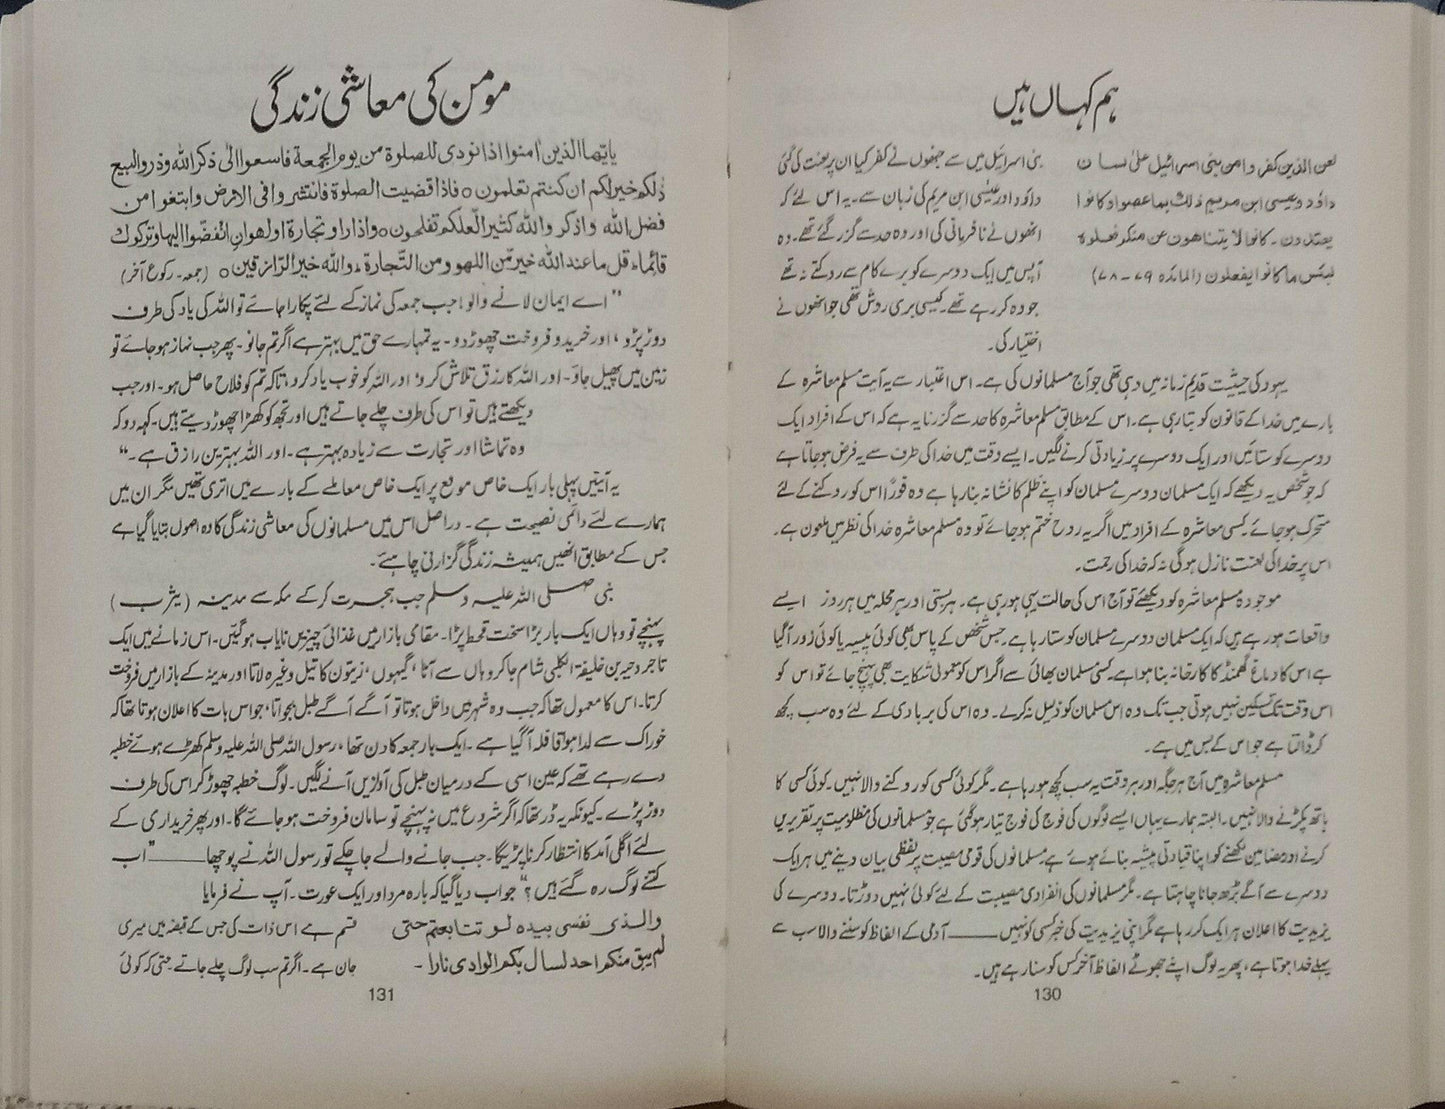 ہم کہاں ہیں
لعن الذین کفروا من بنی اسرائیل علیٰ لسان
داؤد وعیسی ابن مریم ذلک بما عصوا وکانوا
یعتدون۔ کانوا لا یتناھون عن منکر فعلوہ
لبئس ما کانوا یفعلون (المائدہ ۷۹-۷۸)
بنی اسرائیل میں سے جنھوں نے کفر کیا ان پر لعنت کی گئی
داؤد اور عیسیٰ ابن مریم کی زبان سے۔ یہ اس لئے کہ
انھوں نے نافرمانی کی اور وہ حد سے گزر گئے تھے۔ وہ
آپس میں ایک دوسرے کو برے کام سے روکتے نہ تھے
جو وہ کر رہے تھے۔ کیسی بری روش تھی جو انھوں نے
اختیار کی۔
یہود کی حیثیت قدیم زمانہ میں وہی تھی جو آج مسلمانوں کی ہے۔ اس اعتبار سے یہ آیت مسلم معاشرہ کے
بارے میں خدا کے قانون کو بتا رہی ہے۔ اس کے مطابق مسلم معاشرہ کا حد سے گزرنا یہ ہے کہ اس کے افراد ایک
دوسرے کو ستائیں اور ایک دوسرے پر زیادتی کرنے لگیں۔ ایسے وقت میں خدا کی طرف سے یہ فرض ہو جاتا ہے
کہ جو شخص یہ دیکھے کہ ایک مسلمان دوسرے مسلمان کو اپنے ظلم کا نشانہ بنا رہا ہے وہ فوراً اس کو روکنے کے لئے
متحرک ہو جائے۔ کسی معاشرہ کے افراد میں اگر یہ روح ختم ہو جائے تو وہ مسلم معاشرہ خدا کی نظر میں ملعون ہے۔
اس پر خدا کی لعنت نازل ہوگی نہ کہ خدا کی رحمت۔
موجودہ مسلم معاشرہ کو دیکھئے تو آج اس کی حالت یہی ہو رہی ہے۔ ہر بستی اور ہر محلہ میں ہر روز ایسے
واقعات ہو رہے ہیں کہ ایک مسلمان دوسرے مسلمان کو ستا رہا ہے۔ جس شخص کے پاس بھی کوئی پیسہ یا کوئی زور آگیا
ہے اس کا دماغ گھمنڈ کا کارخانہ بنا ہوا ہے۔ کسی مسلمان بھائی سے اگر اس کو معمولی شکایت بھی پہنچ جائے تو اس کو
اس وقت تک تسکین نہیں ہوتی جب تک وہ اس مسلمان کو ذلیل نہ کرلے۔ وہ اس کی بربادی کے لئے وہ سب کچھ
کر ڈالتا ہے جو اس کے بس میں ہے۔
مسلم معاشرہ میں آج ہر جگہ اور ہر وقت یہ سب کچھ ہو رہا ہے۔ مگر کوئی کسی کو روکنے والا نہیں۔ کوئی کسی کا
ہاتھ پکڑنے والا نہیں۔ البتہ ہمارے یہاں ایسے لوگوں کی فوج کی فوج تیار ہو گئی ہے جو مسلمانوں کی مظلومیت پر تقریریں
کرنے اور مضامین لکھنے کو اپنا قیادتی پیشہ بنائے ہوئے ہے۔ مسلمانوں کی قومی مصیبت پر لفظی بیان دینے میں ہر ایک
دوسرے سے آگے بڑھ جانا چاہتا ہے۔ مگر مسلمانوں کی انفرادی مصیبت کے لئے کوئی نہیں دوڑتا۔ دوسرے کی
یزیدیت کا اعلان ہر ایک کر رہا ہے مگر اپنی یزیدیت کی خبر کسی کو نہیں ——— آدمی کے الفاظ کو سننے والا سب سے
پہلے خدا ہوتا ہے، پھر یہ لوگ اپنے جھوٹے الفاظ آخر کس کو سنا رہے ہیں۔
130
مومن کی معاشی زندگی
یایھا الذین اٰمنوا اذا نودی للصلوٰۃ من یوم الجمعۃ فاسعوا الیٰ ذکر اللہ وذروا البیع
ذٰلکم خیر لکم ان کنتم تعلمون ○ فاذا قضیت الصلوٰۃ فانتشروا فی الارض وابتغوا من
فضل اللہ واذکروا اللہ کثیرا لعلکم تفلحون ○ واذا راوا تجارۃ او لھوان انفضوا الیھا وترکوک
قائما، قل ما عند اللہ خیر من اللھو ومن التجارۃ، واللہ خیر الرازقین ○ (جمعہ۔ رکوع آخر)
"اے ایمان لانے والو! جب جمعہ کی نماز کے لئے پکارا جائے تو اللہ کی یاد کی طرف
دوڑ پڑو، اور خرید و فروخت چھوڑ دو۔ یہ تمہارے حق میں بہتر ہے اگر تم جانو۔ پھر جب نماز ہو جائے تو
زمین میں پھیل جاؤ۔ اور اللہ کا رزق تلاش کرو، اور اللہ کو خوب یاد کرو، تاکہ تم کو فلاح حاصل ہو۔ اور جب
دیکھتے ہیں تو اس کی طرف چلے جاتے ہیں اور تجھ کو کھڑا چھوڑ دیتے ہیں۔ کہہ دو کہ
وہ تماشا اور تجارت سے زیادہ بہتر ہے۔ اور اللہ بہترین رازق ہے۔"
یہ آیتیں پہلی بار ایک خاص موقع پر ایک خاص معاملے کے بارے میں اتری تھیں مگر ان میں
ہمارے لئے دائمی نصیحت ہے۔ دراصل اس میں مسلمانوں کی معاشی زندگی کا وہ اصول بتایا گیا ہے
جس کے مطابق انھیں ہمیشہ زندگی گزارنی چاہئے۔
نبی صلی اللہ علیہ وسلم جب ہجرت کر کے مکہ سے مدینہ (یثرب)
پہنچے تو وہاں ایک بار بڑا سخت قحط پڑا۔ مقامی بازار میں غذائی چیزیں نایاب ہو گئیں۔ اس زمانے میں ایک
تاجر دحیہ بن خلیفۃ الکلبی شام جا کر وہاں سے آٹا، گیہوں، زیتون کا تیل وغیرہ لاتا اور مدینہ کے بازار میں فروخت
کرتا۔ اس کا معمول تھا کہ جب وہ شہر میں داخل ہوتا تو آگے آگے طبل بجواتا، جو اس بات کا اعلان ہوتا تھا کہ
خوراک سے لدا ہوا قافلہ آگیا ہے۔ ایک بار جمعہ کا دن تھا، رسول اللہ صلی اللہ علیہ وسلم کھڑے ہوئے خطبہ
دے رہے تھے کہ عین اسی کے درمیان طبل کی آوازیں آنے لگیں۔ لوگ خطبہ چھوڑ کر اس کی طرف
دوڑ پڑے۔ کیونکہ یہ ڈر تھا کہ اگر شروع میں نہ پہنچے تو سامان فروخت ہو جائے گا۔ اور پھر خریداری کے
لئے اگلی آمد کا انتظار کرنا پڑیگا۔ جب جانے والے جا چکے تو رسول اللہ نے پوچھا ——— "اب
کتنے لوگ رہ گئے ہیں؟" جواب دیا گیا کہ بارہ مرد اور ایک عورت۔ آپ نے فرمایا
والذی نفسی بیدہ لو تتابعتم حتی
لم یبق منکم احد لسال بکم الوادی نارا۔
قسم ہے اس ذات کی جس کے قبضہ میں میری
جان ہے۔ اگر تم سب لوگ چلے جاتے حتی کہ کوئی
131